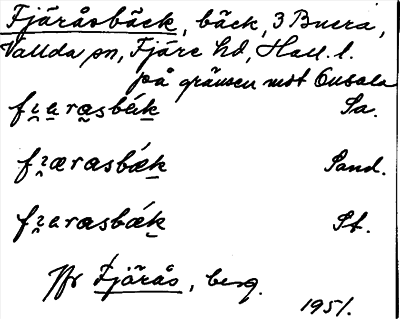 Fjäråsbäck, bäck, 3 Buera,
Vallda sn, Fjäre hd, Hall. l.
på gränsen mot Onsala
Sa.
Sand.
St.
Jfr Fjärås, berg.
1951.